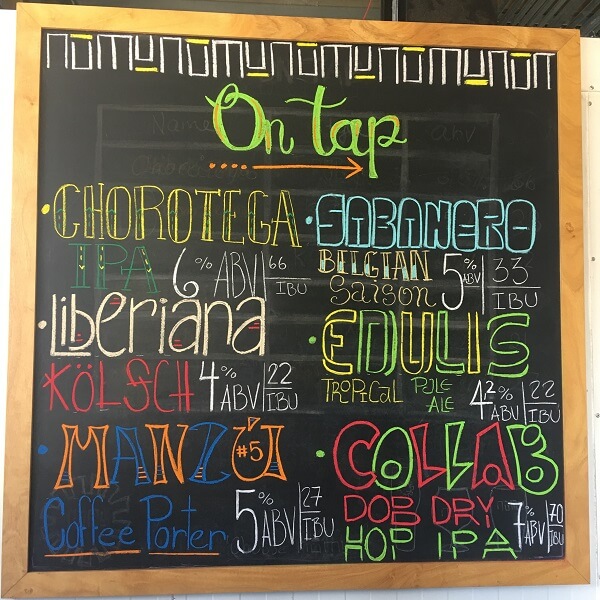 On tap
CHOROTEGA
IPA 6% ABV 66 IBU
Liberiana
KÖLSCH 4% ABV 22 IBU
MANZÚ #5
Coffee Porter 5% ABV 27 IBU
SABANERO
BELGIAN Saison 5% ABV 33 IBU
EDULIS
TROPICAL PALE ALE 4.2% ABV 22 IBU
COLLAB
DOB DRY HOP IPA 7% ABV 70 IBU